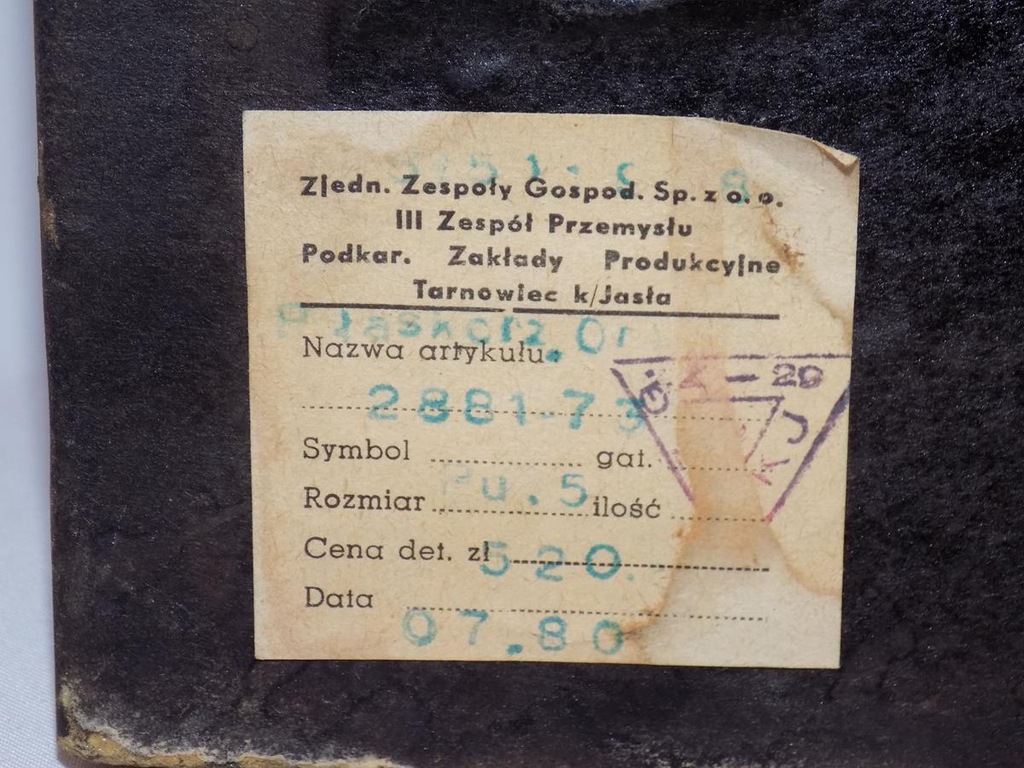 Zjedn. Zespoły Gospod. Sp. z o. o.
III Zespół Przemysłu
Podkar. Zakłady Produkcyjne
Tarnowiec k/Jasła
Nazwa artykułu
2881-73
Symbol gat.
Rozmiar Pu.5 ilość
Cena det. zł 520.
Data 07.80
K - 29
KJ